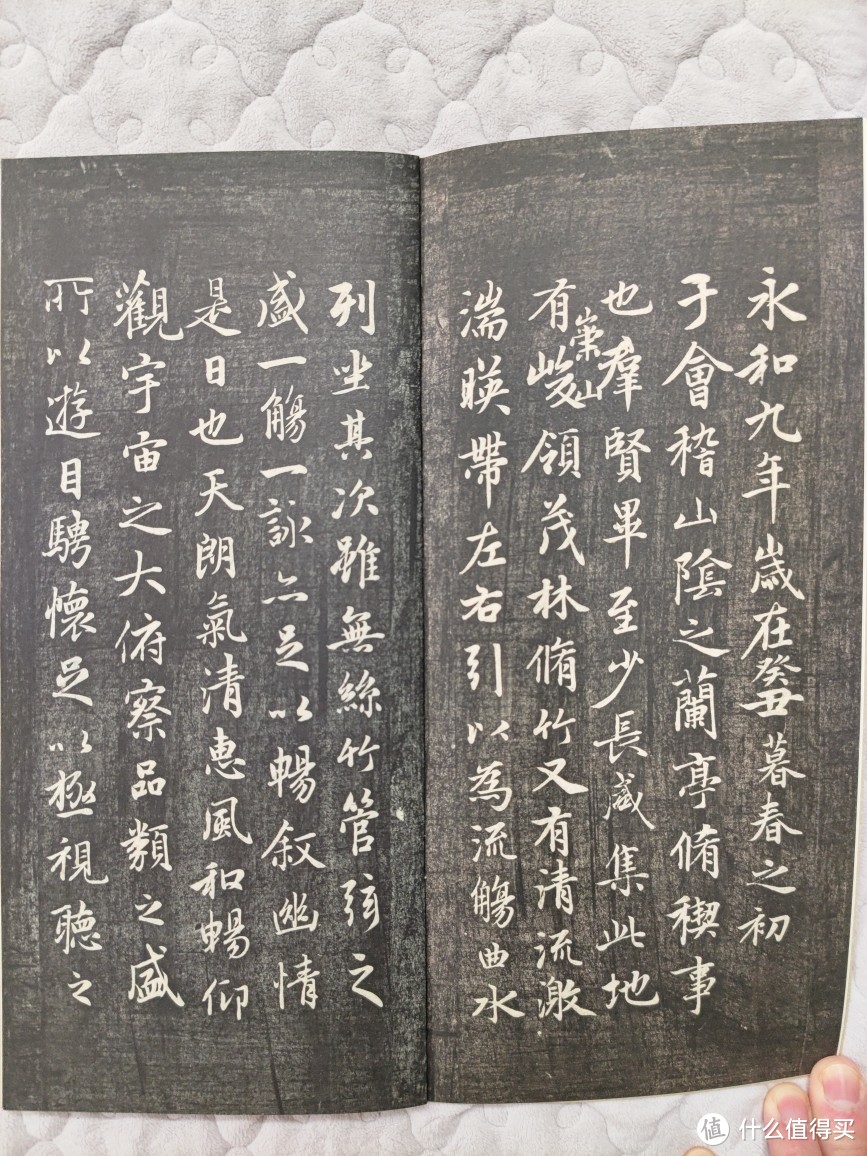 永和九年歲在癸丑暮春之初
于會稽山陰之蘭亭脩稧事
也羣賢畢至少長咸集此地
有崇山峻領茂林脩竹又有清流激
湍暎帶左右引以為流觴曲水
列坐其次雖無絲竹管弦之
盛一觴一詠亦足以暢叙幽情
是日也天朗氣清惠風和暢仰
觀宇宙之大俯察品類之盛
所以遊目騁懷足以極視聽之
值 什么值得买